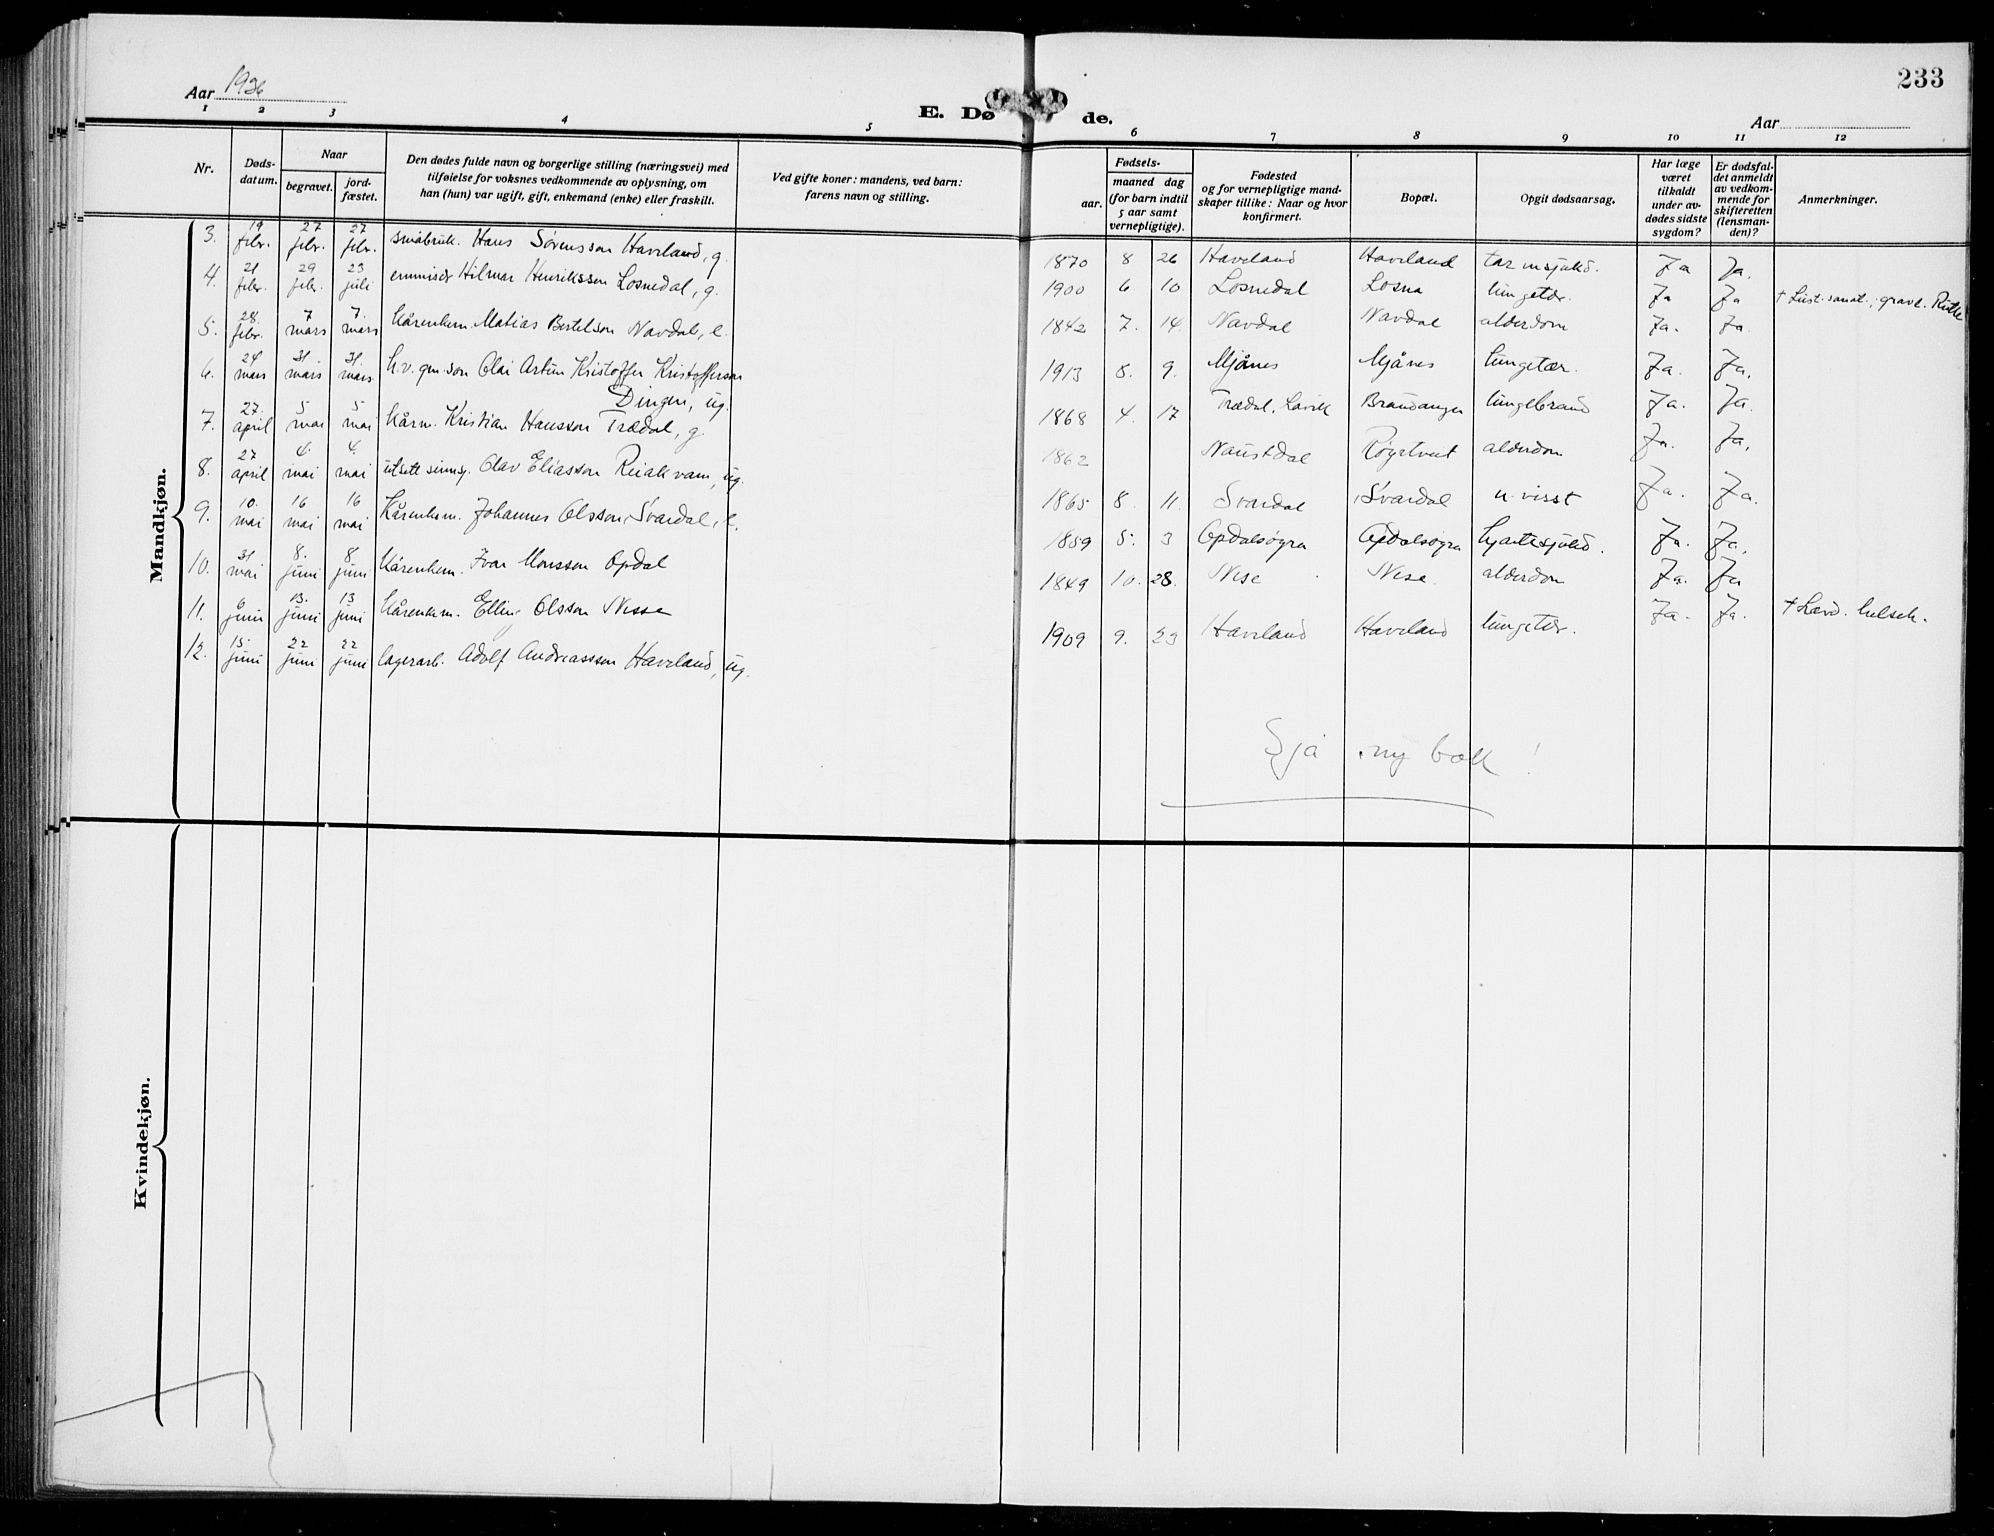 233
Aar 1936
E. Døde.
Aar
1 2 3 4 5 6 7 8 9 10 11 12
Nr.
Døds-
datum.
Naar
begravet.
jord-
fæstet.
Den dødes fulde navn og borgerlige stilling (næringsvei) med
tilføielse for voksnes vedkommende av oplysning, om
han (hun) var ugift, gift, enkemand (enke) eller fraskilt.
Ved gifte koner: mandens, ved barn:
farens navn og stilling.
Fødsels-
aar.
maaned dag
(for barn indtil
5 aar samt
vernepligtige).
Fødested
og for vernepligtige mand-
skaper tillike: Naar og hvor
konfirmert.
Bopæl.
Opgit dødsaarsag.
Har læge
været
tilkaldt
under av-
dødes sidste
sygdom?
Er dødsfal-
det anmeldt
av vedkom-
mende for
skifteretten
(lensman-
den)?
Anmerkninger.
Mandkjøn.
3. 19 febr. 27 febr. 27 febr. småbruk. Hans Sørensson Haveland, g. 1870 8 26 Haveland Haveland tarmsjukd. Ja Ja.
4. 21 febr. 29 febr. 23 juli Hilmar Henriksson Losnedal, g. 1900 6 10 Losnedal Losna lungetær. Ja Ja † Lust. sanat., gravl.
5. 28. febr. 7 mars 7. mars kårenkem. Matias Bertelson Navdal, e. 1842 7. 14. Navdal Navdal alderdom Ja. Ja.
6. 24 mars 31 mars 31. mars h.v. gm. son Olai Artur Kristoffer Kristofferson
Dingen, ug. 1913 8. 9. Mjånes Mjånes lungetær. Ja. Ja.
7. 27. april 5 mai 5 mai kårm. Kristian Hansson Trædal, g. 1868 4. 17 Trædal, Lavik Brandanger lungebrand Ja. Ja.
8. 27 april 4. mai 4. mai utsett sinnsj. Olav Eliasson Reiakvam, ug. 1862 Naustdal Røyrtveit alderdom Ja. Ja.
9. 10. mai 16 mai 16 mai Kårenkem. Johannes Olsson Svardal, e. 1865 8. 11. Svardal Svardal u. visst Ja. Ja.
10. 31 mai 8. juni 8 juni Kårenkem. Ivar Monsson Opdal 1859 5. 3 Opdalsøyra Opdalsøyra hjartesjukd. Ja. Ja.
11. 6 juni 13. juni 13 juni Kårenkem. Elling Olsson Nesse 1849 10. 28. Nese Nese alderdom Ja. Ja
12. 15. juni 22 juni 22 juni lagerarb. Adolf Andreassson Haveland, ug. 1909 9. 23 Haveland Haveland lungetær. Ja. Ja. † Lærd. helseh.
Sjå ny bok!
Kvindekjøn.